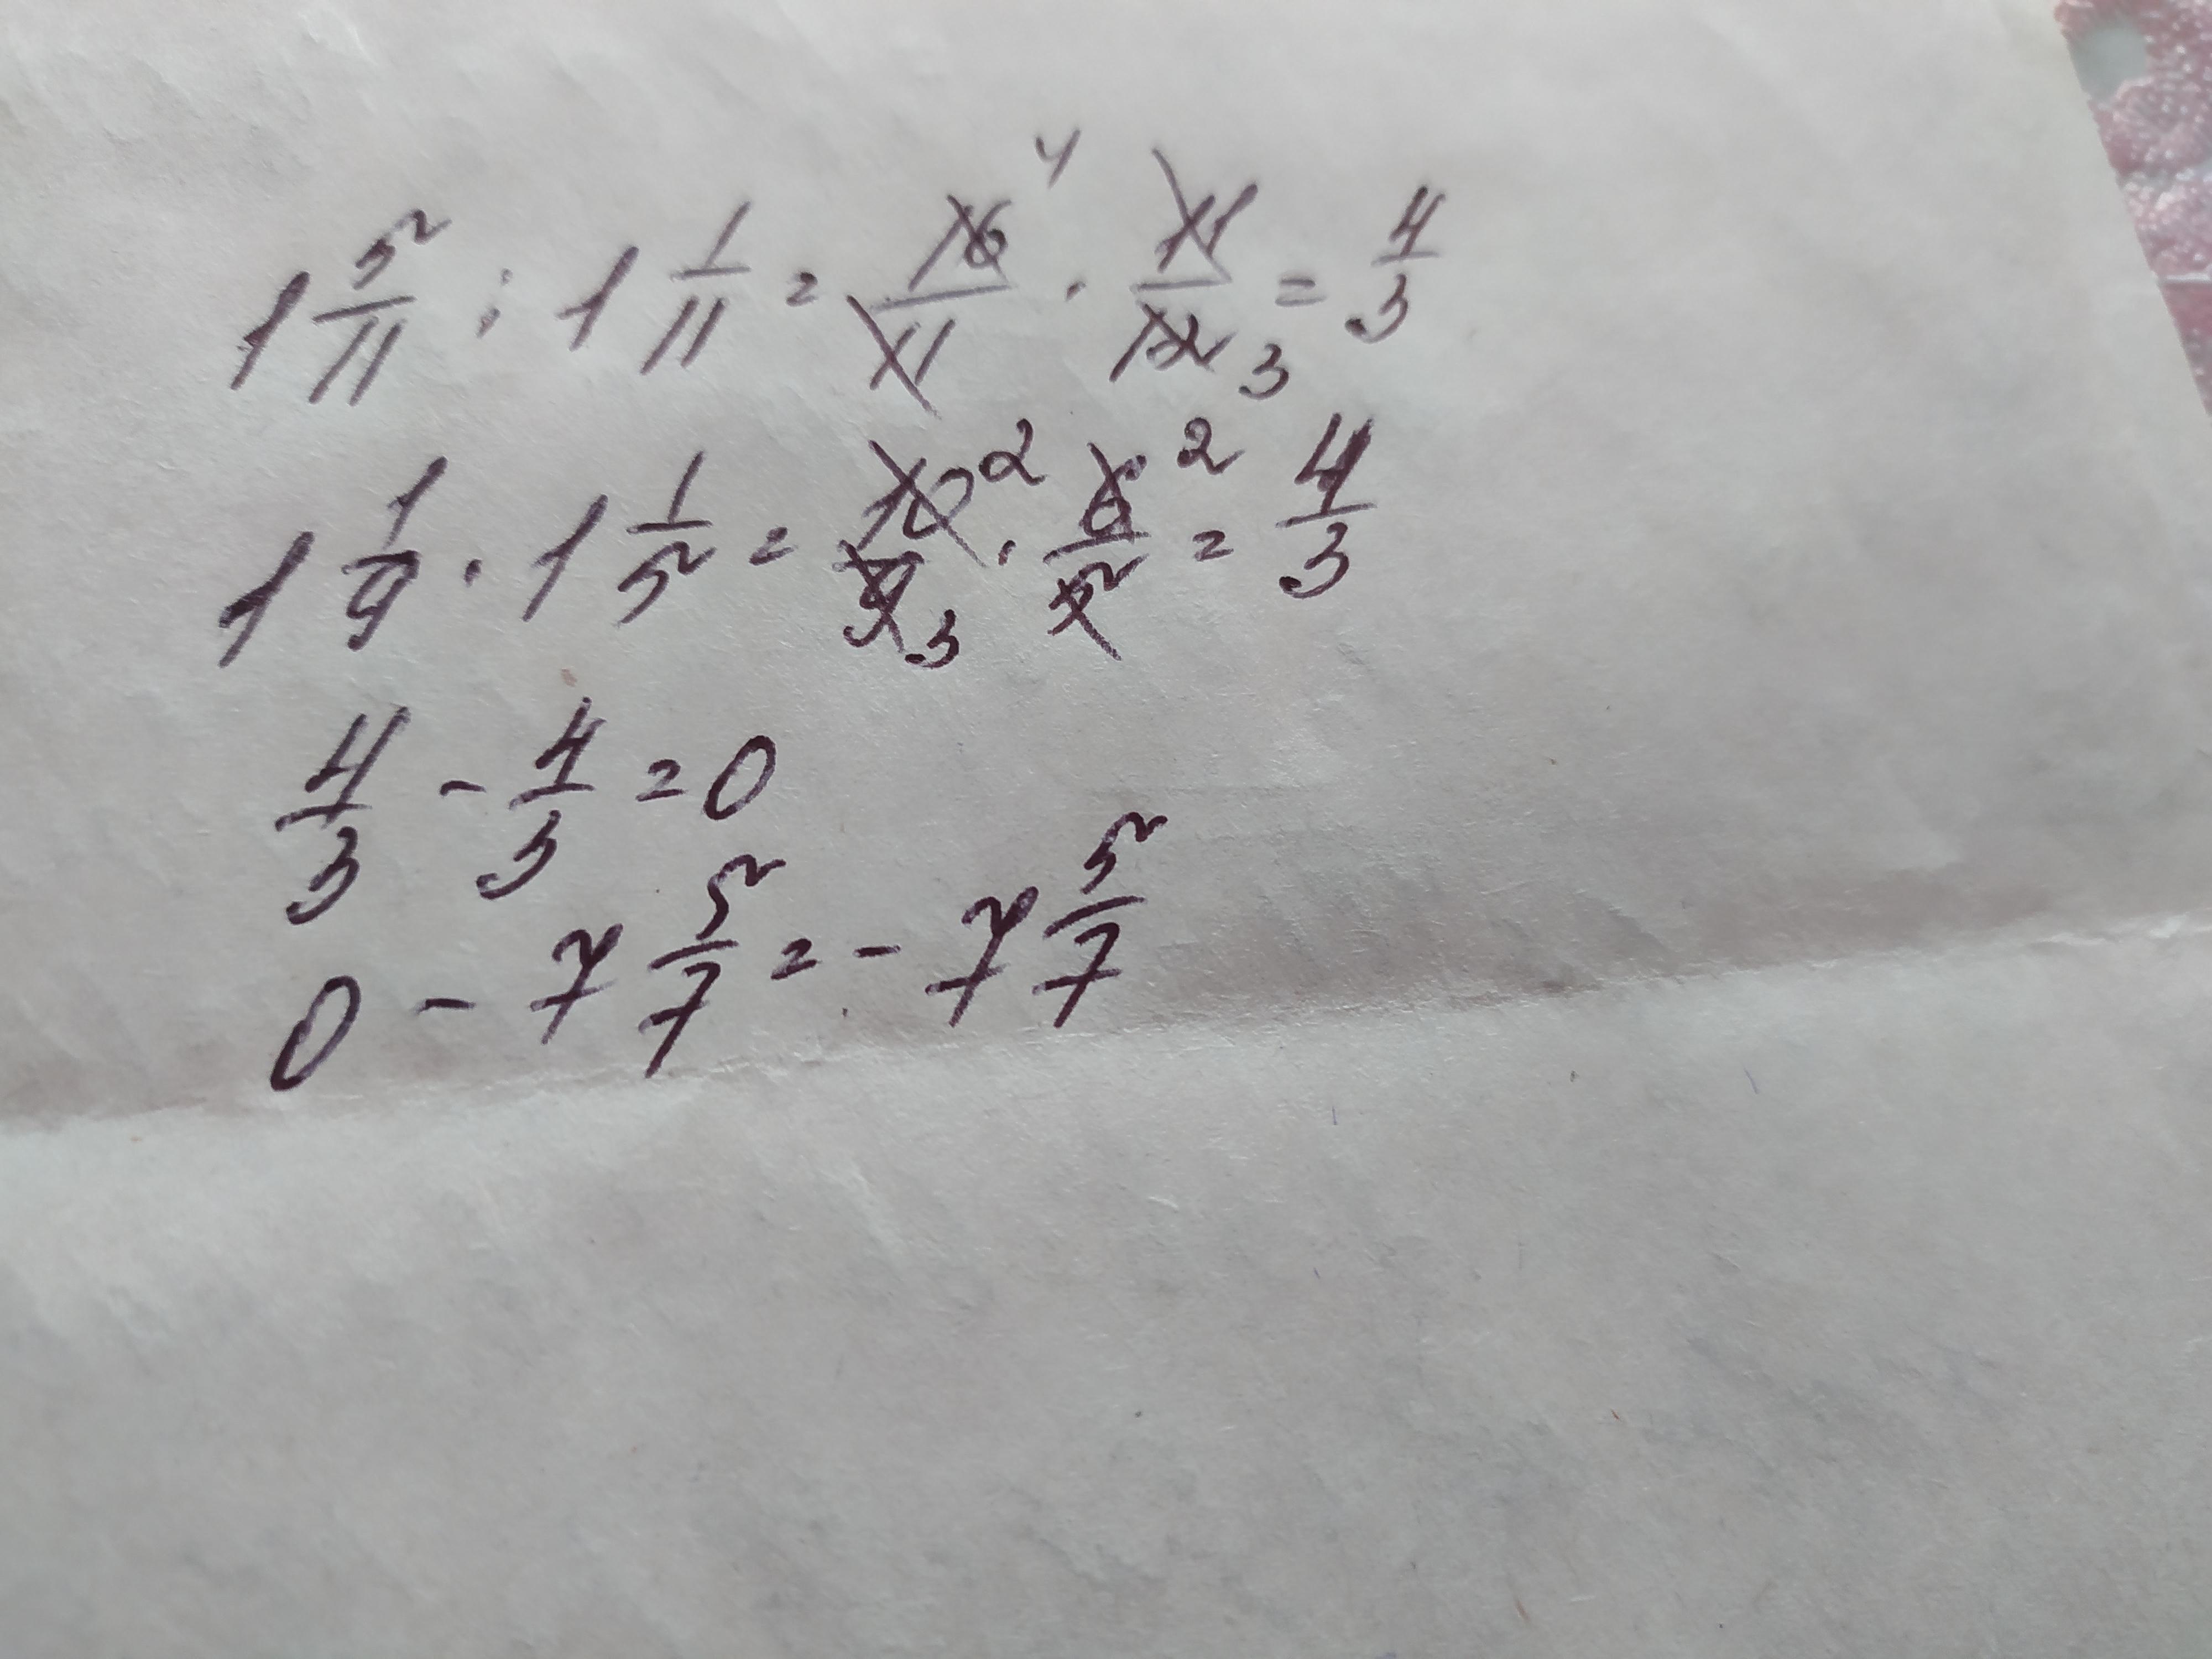 1 5/11 : 1 1/11 = 16/11 4 · 11/12 3 = 4/3
1 1/9 · 1 1/5 = 10/9 2 3 · 6/5 2 = 4/3
4/3 - 4/3 = 0
0 - 7 5/7 = - 7 5/7